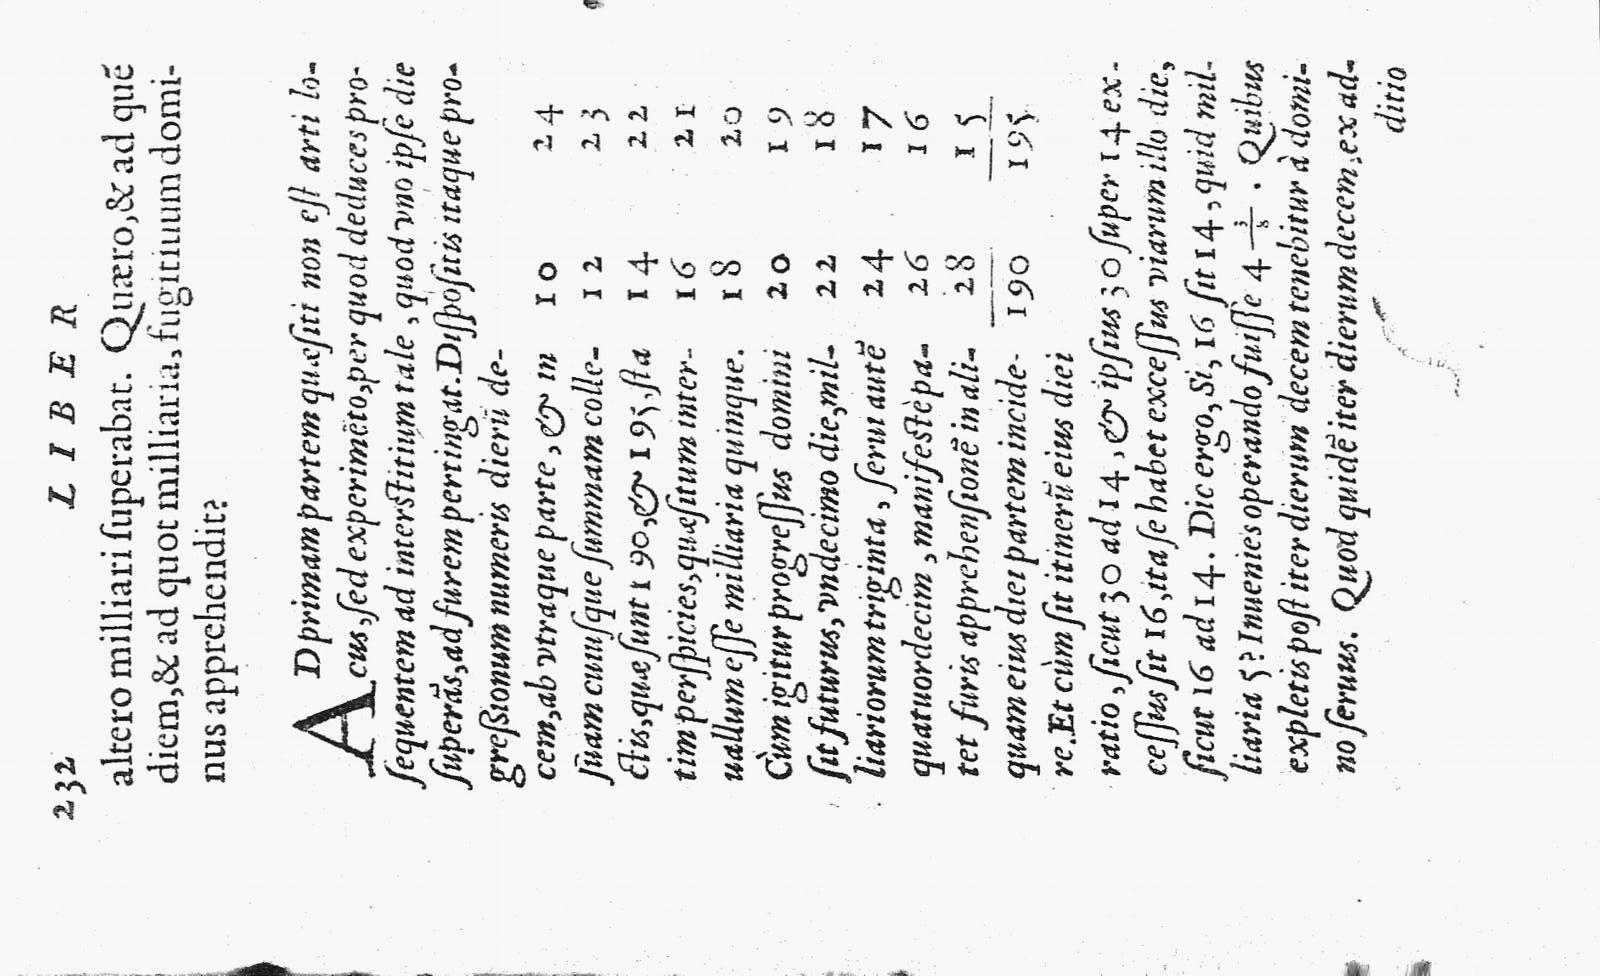 232 LIBER
altero milliari ſuperabat. Quæro,& ad quẽ
diem,& ad quot milliaria, fugitiuum domi-
nus apprehendit?
AD primam partem quæſiti non eſt arti lo-
cus, ſed experimẽto, per quod deduces pro-
ſequentem ad interſtitium tale, quod vno ipſe die
ſuperãs, ad furem pertingat. Diſpoſitis itaque pro-
greſſionum numeris dierũ de-
cem, ab vtraque parte, & in 10 24
ſuam cuiuſque ſummam colle- 12 23
ctis, quæ ſunt 190, & 195, ſta 14 22
tim perſpicies, quæſitum inter- 16 21
uallum eſſe milliaria quinque. 18 20
Cùm igitur progreſſus domini 20 19
ſit futurus, vndecimo die, mil- 22 18
liariorum triginta, ſerui autẽ 24 17
quatuordecim, manifeſtè pa- 26 16
tet furis apprehenſionẽ in ali- 28 15
quam eius diei partem incide- 190 195
re. Et cùm ſit itinerũ eius diei
ratio, ſicut 30 ad 14, & ipſius 30 ſuper 14 ex-
ceſſus ſit 16, ita ſe habet exceſſus viarum illo die,
ſicut 16 ad 14. Dic ergo, Si, 16 ſit 14, quid mil-
liaria 5? Inuenies operando fuiſſe 4 3/8. Quibus
expletis poſt iter dierum decem tenebitur à domi-
no ſeruus. Quod quidẽ iter dierum decem, ex ad-
ditio